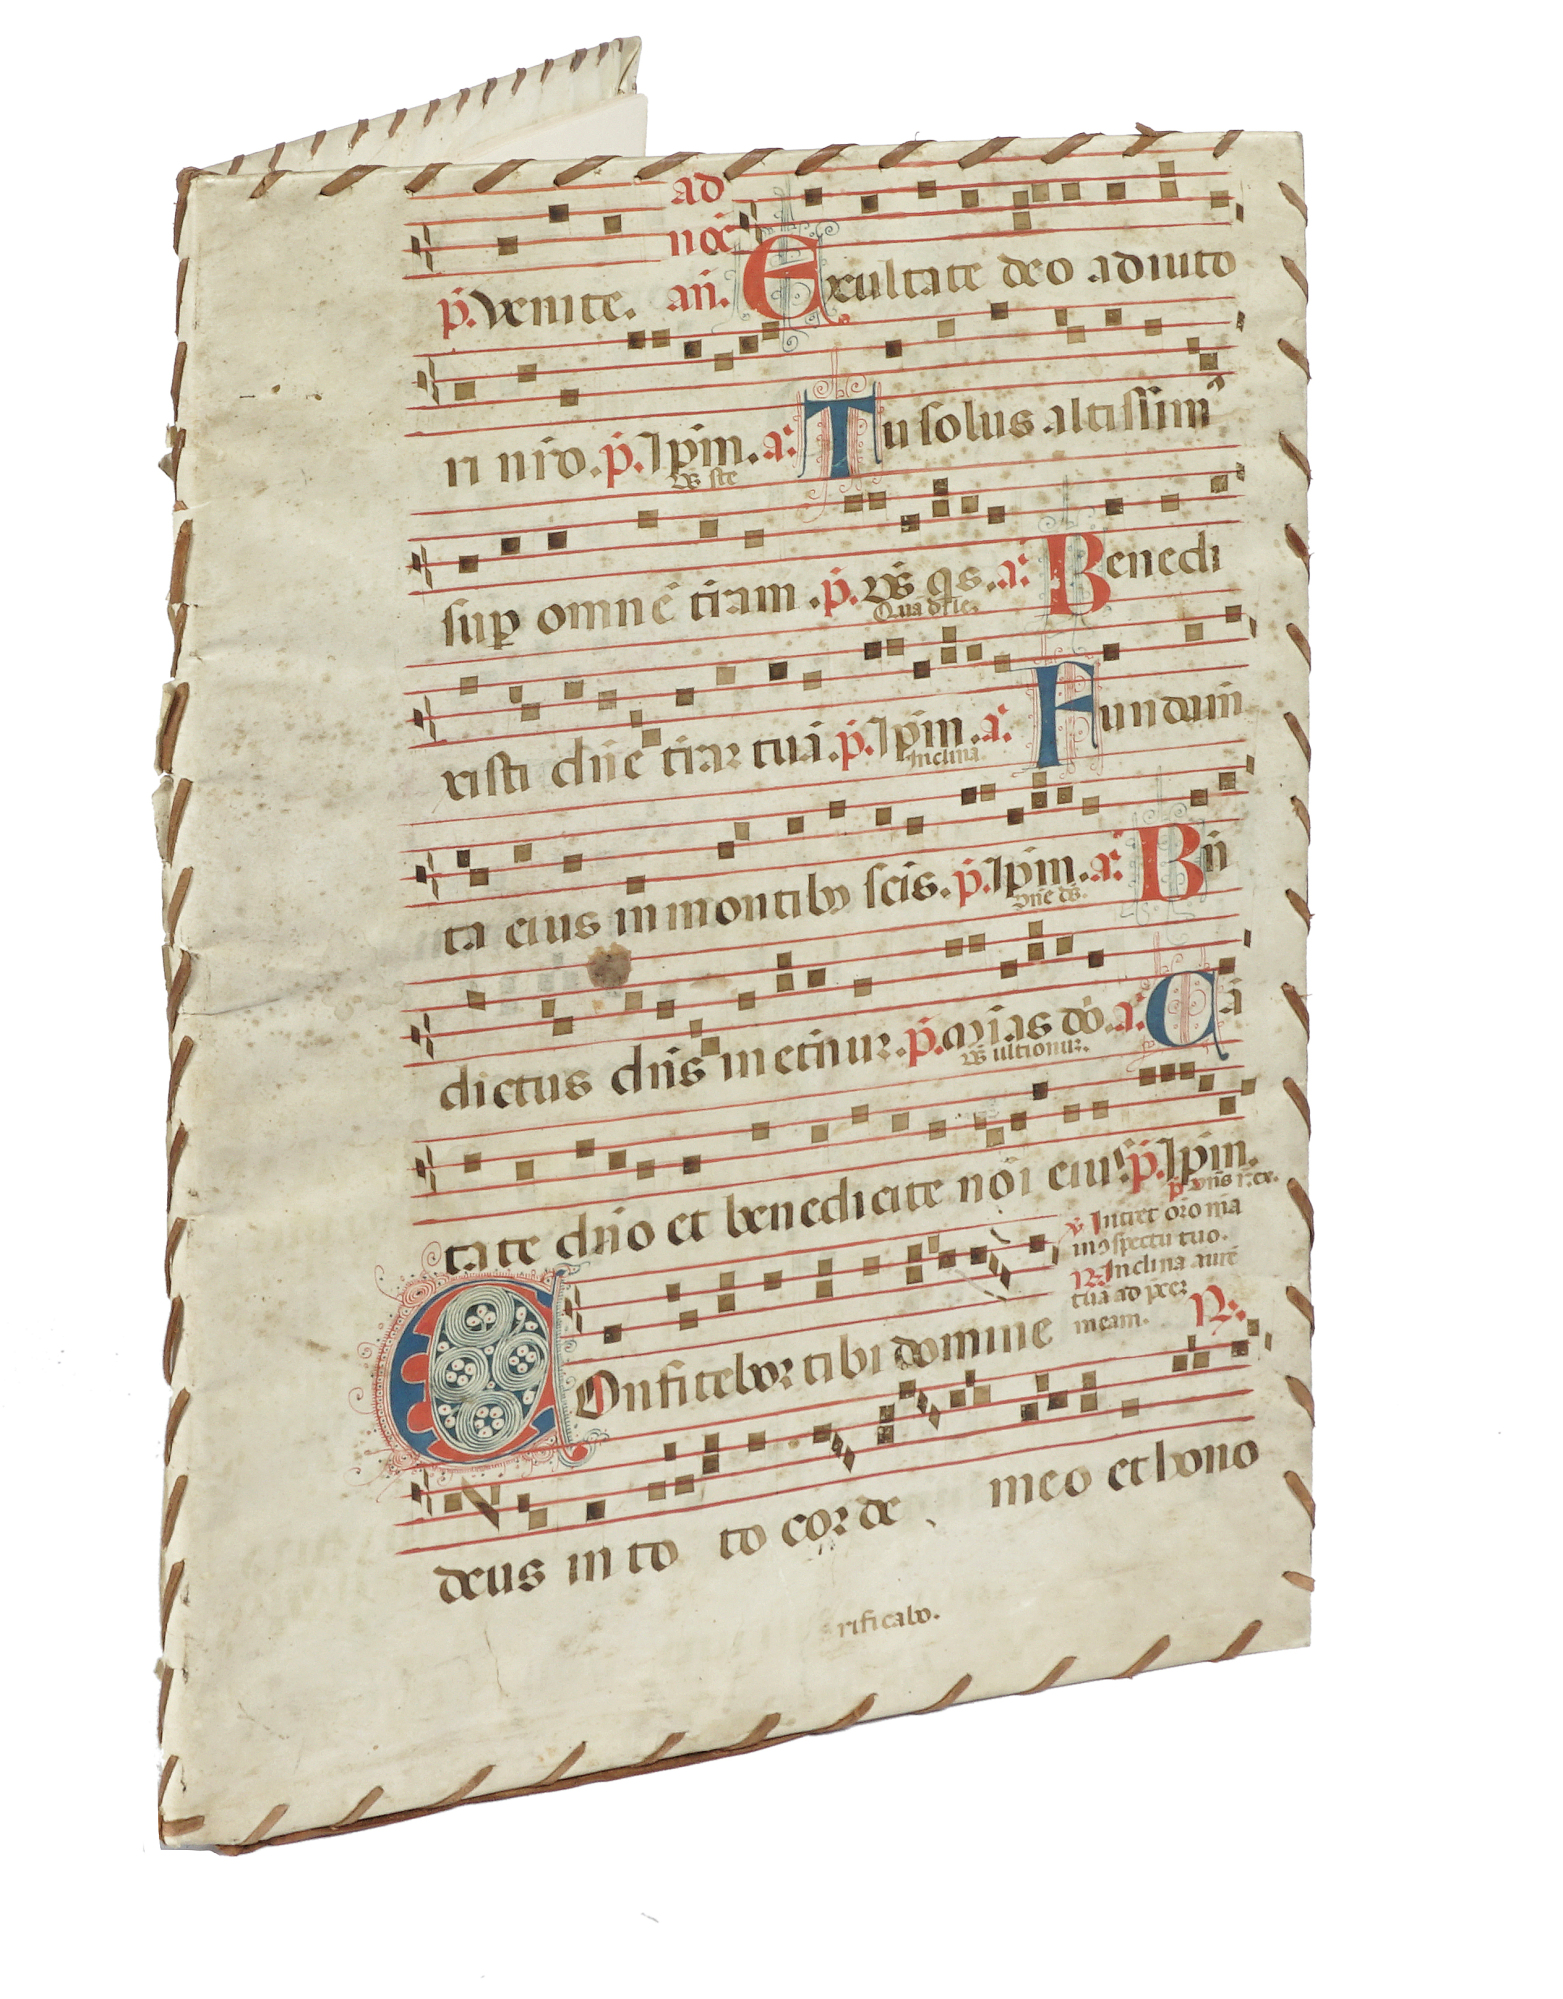 ad
noc̄
p̄. venite. an̄. Exultate deo adiuto
ri nr̄o. p̄. Ip̄m. a᷒. Tu solus altissimꝰ
ꝟs̄ ste
suꝑ omnē tr̄am. p̄. ꝟs̄ qs. a᷒. Benedi
Qua dr̄ie.
xisti dn̄e tr̄aꝛ tuā. p̄. Ip̄m. a᷒. Fundam̄
Inclina.
ta eius in montibꝰ sc̄is. p̄. Ip̄m. a᷒. Bn̄
dn̄e ds̄.
dictus dn̄s in etn̄uꝝ. p̄. mīas dō. a᷒. Cā
ꝟs̄ ultionuꝝ.
tate dn̄o et benedicite nōi eius. p̄. Ip̄m.
p̄ dn̄s r̄. ex.
℣ Intret oro mīa
in ↄspectu tuo.
℟. Inclina aurē
tuā ad p̄ceꝫ
meam. ℟.
COnfiteboꝛ tibi domine
deus in to to coꝛde meo et hono
rificabo.